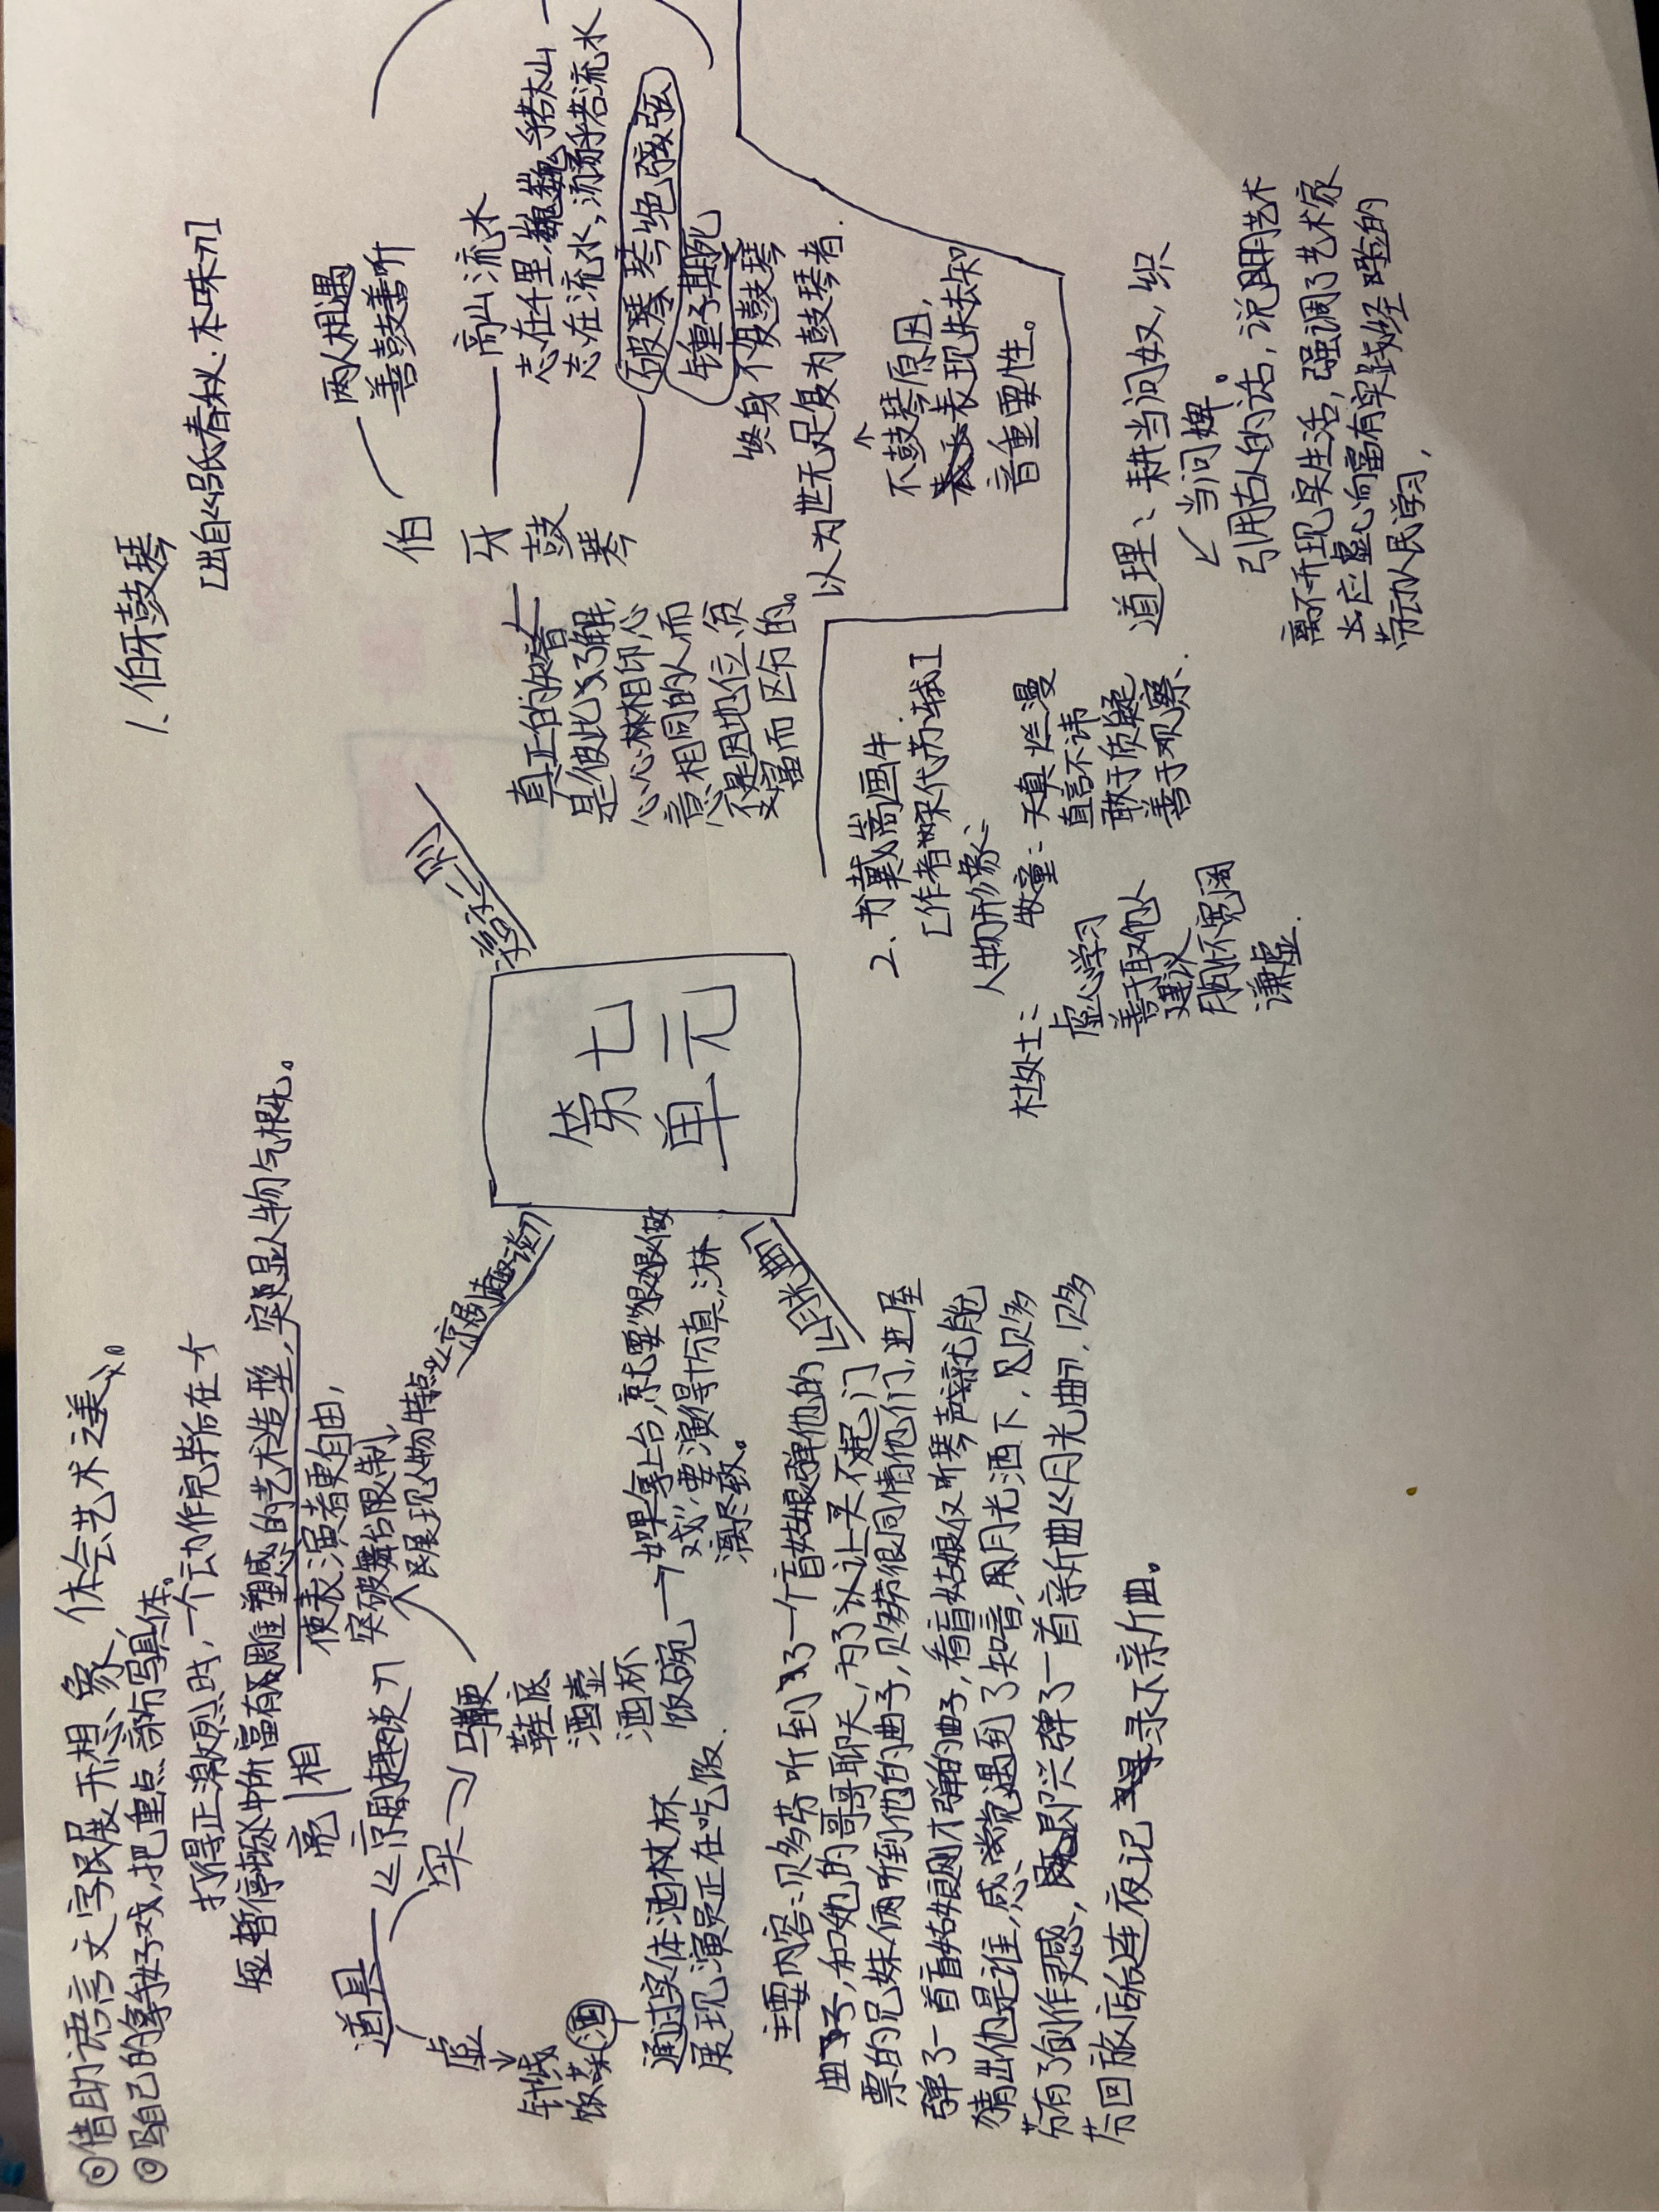 ◎借助语言文字展开想象,体会艺术之美。
◎写自己的拿手好戏,把重点部分写具体。
打得正激烈时,一个动作完毕后在一个
短暂停顿中所富有雕塑感的艺术造型,突显人物气概。
亮相
使表演者更自由,
突破舞台限制,
展现人物特点
《京剧趣谈》
道具
虚
针线
饭菜
酒
实
马鞭
鞋底
酒壶
酒杯
饭碗
通过实体酒杯
展现演员正在吃饭.
如果拿上台,就要"狠狠做
戏",要演得十分真,淋
漓尽致。
《京剧趣谈》
第七
单元
《月光曲》
主要内容:贝多芬听到了一个盲姑娘弹他的
曲子,和她的哥哥聊天,为了让买不起门
票的兄妹俩听到他的曲子,贝多芬很同情他们,进屋
弹了一首盲姑娘刚才弹的曲子,看盲姑娘仅听琴声就能
猜出他是谁,感觉遇到了知音,用月光洒下,贝多
芬有了创作灵感,即兴弹了一首新曲《月光曲》,贝多
芬回旅店后连夜记录下新曲。
《文言文二则》
1.伯牙鼓琴
[出自《吕氏春秋·本味》]
伯
牙
鼓
琴
两人相遇
善鼓善听
高山流水
志在千里,巍巍乎若太山
志在流水,汤汤乎若流水
破琴绝弦
锺子期死
终身不复鼓琴
以为世无足复为鼓琴者.
不鼓琴原因,
表现失去知
音重要性。
真正的知音
是彼此了解,
心心相印,心
意相同的人而
不是因地位、贫
富而区分的。
2.书戴嵩画牛
[作者:宋代苏轼]
人物形象:
牧童:天真烂漫
直言不讳
敢于质疑
善于观察.
杜处士:
虚心学习
善于取他人
建议
胸怀宽阔
谦虚.
道理:耕当问奴,织
当问婢。
引用古人的话,说明艺术
离不开现实生活,强调了艺术家
应虚心向富有实践经验的
劳动人民学习,